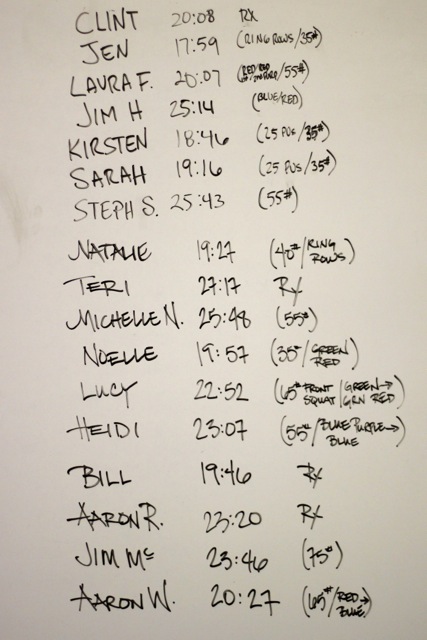 CLINT 20:08 RX
JEN 17:59 (RING ROWS/35#)
LAURA F. 20:07 (RED/RED /55#)
JIM H 25:14 (BLUE/RED)
KIRSTEN 18:46 (25 PUS/35#)
SARAH 19:16 (25 PUS/35#)
STEPH S. 25:43 (55#)
NATALIE 19:27 (40#/RING ROWS)
TERI 27:17 RX
MICHELLE N. 25:48 (55#)
NOELLE 19:57 (35#/GREEN RED)
LUCY 22:52 (65# FRONT SQUAT/GREEN→ GRN RED)
HEIDI 23:07 (55#/BLUE PURPLE→ BLUE)
BILL 19:46 RX
AARON R. 23:20 RX
JIM Mc 23:46 (75#)
AARON W. 20:27 (65#/RED→ BLUE)